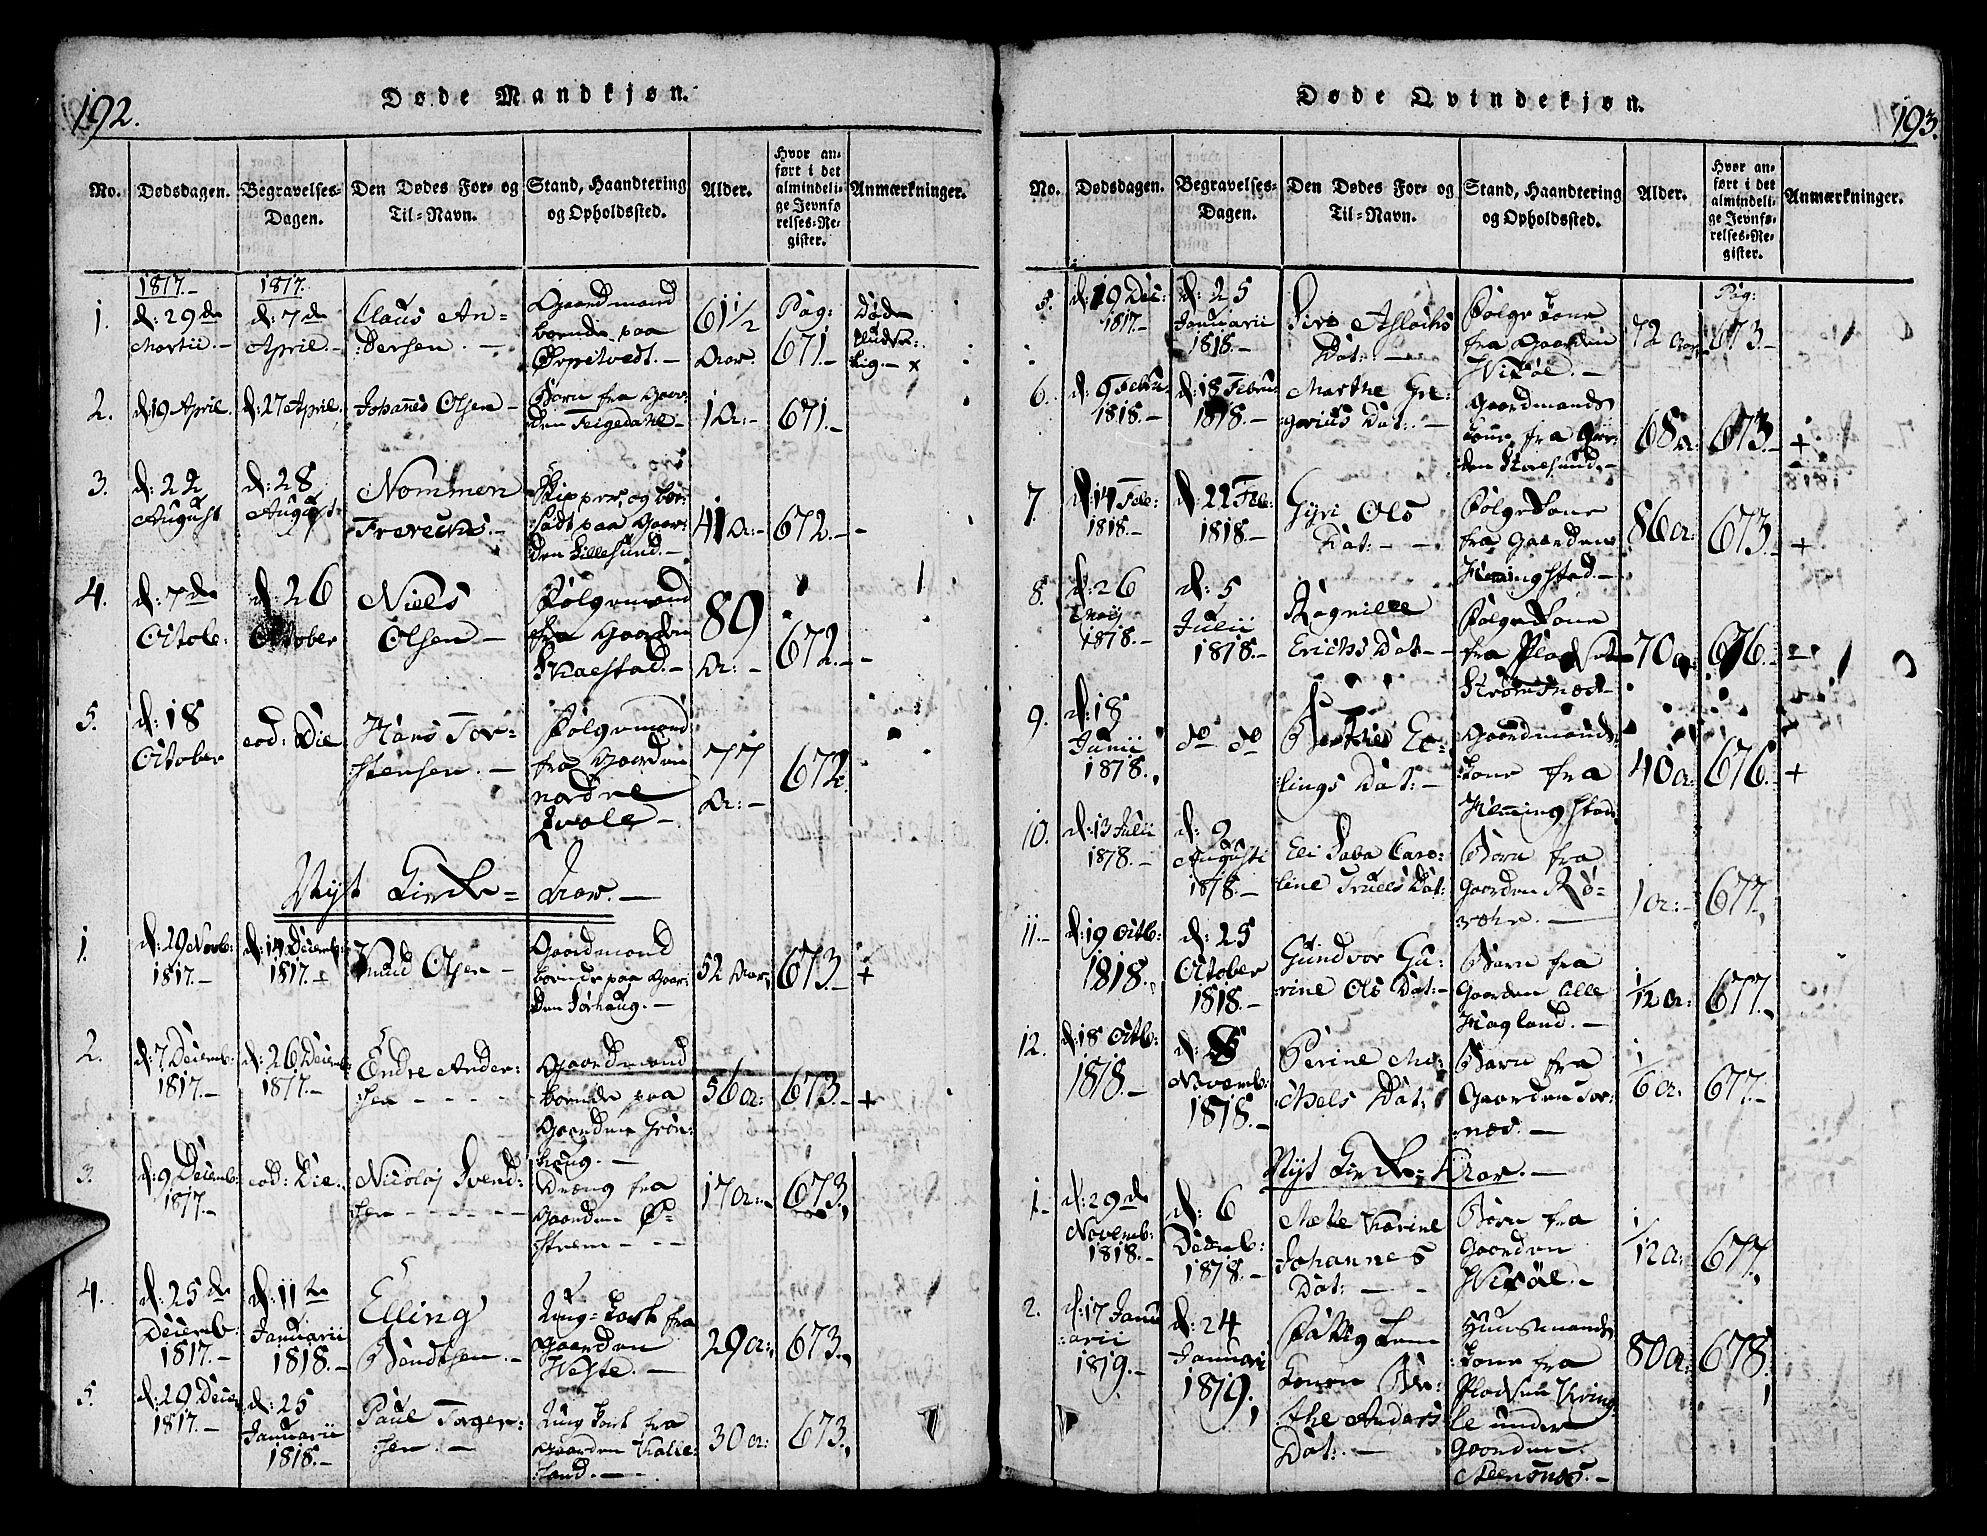 192.
Døde Mandkjøn.
No. Dødsdagen. Begravelses-Dagen. Den Dødes For- og Til-Navn. Stand, Haandtering og Opholdssted. Alder. Hvor anført i det almindelige Jevnførelses-Register. Anmærkninger.
1817.- 1817.
1. d: 29de Martii.- d: 7de April.- Claus An-
:dersen.- Gaardmand
boende paa
61 1/2 Aar Pag: 671.- Døde
pludse-
lig.- x
2. d: 19 April. d: 27 April. Johannes Olsen- Barn fra Gaar-
den Feigedahl- 1 a:- 671.-
3. d: 22 August d: 28 August- Nommen
Frerechs.- Skipper, og boe-
:sadt paa Gaar-
den Lillesund.- 41 a:- 672.-
4. d: 7de Octob: d: 26 October Niels
Olsen- Følgemand
fra Gaarden
Skaestad.- 89 Ar:- 672.-
5. d: 18 October eod: Die Hans Tor-
stensen.- Følgemand
fra Gaarden
nordre
Qvale- 77 Ar:- 672.
Nyt Kirke= Aar.-
1. d: 29 Novb: 1817.- d: 14 Decemb: 1817.- Knud Olsen- Gaardmand
boende paa Gaar-
den Sørhaug.- 52 Aar, 673.- +
2. d: 7 Decemb: 1817.- d: 26 Decemb: 1817.- Endre Ander-
:sen- Gaardmand
boende paa
Gaarden Grøn-
haug.- 56 a: 673.- +
3. d: 9 Decemb: 1817.- eod: Die.- Nicolaj Svend-
:sen- Dreng fra
Gaarden Ø-
strem- 17 a:- 673.
4. d: 25de Decemb: 1817.- d: 11te Januarii 1818.- Elling
Bendtsen.- Ung-Karl fra
Gaarden
29 a: 673.
5. d: 29 Decem 1817.- d: 25 Januarii 1818.- Paul Torger-
:sen.- Ung Karl fra
Gaarden Kalle-
land.- 30 a: 673.
193.
Døde Qvindekjøn.
No. Dødsdagen. Begravelses-Dagen. Den Dødes For- og Til-Navn. Stand, Haandtering og Opholdssted. Alder. Hvor anført i det almindelige Jevnførelses-Register. Anmærkninger.
5. d: 19 Dec: 1817.- d: 25 Januarii 1818.- Siri Aslachs
Dat:- Følge Kone
fra Gaarden
72 Aar Pag: 673.-
6. d: 6 Febru- 1818.- d: 18 Febru 1818.- Marthe Gre-
gorius Dat:- Gaardmands
Kone fra Gaar-
den Storesund.- 68 a: 673- +
7. d: 14 Feb: 1818.- d: 22 Feb: 1818.- Gyri Ols
Dat:- Følge Kone
fra Gaarden
Hemingstad.- 86 a: 673.- +
8. d: 26 Maij 1818.- d: 5 Julii 1818.- Ragnille
Erichs Dat- Følge Kone
fra Pladset
Strømsnæs 70 a: 676.-
9. d: 18 Junii 1818. do do Berthe El-
lings Dat:- Gaardmands
:Kone fra
Hemmingstad 40 a: 676. +
10. d: 13 Julii 1818.- d: 2 Augusti 1818.- Eli Saba Caro-
line Truels Dat: Barn fra
Gaarden Rø-
1 a:- 677.
11.- d: 19 Octb: 1818. d: 25 October 1818.- Gundvor Gu-
rine Ols Dat:- Barn fra
Gaarden Lille
Hagland.- 1/12 a: 677.
12. d: 18 Octb: 1818.- d: 8 Novemb: 1818.- Perine Mi-
chels Dat: Barn fra
Gaarden Tor-
næs.- 1/6 a: 677.-
Nyt Kirke= Aar.-
1- d: 29de Novemb: 1818.- d: 6 Decemb: 1818.- Mette Karine
Johannes
Dat:- Barn fra
Gaarden
1/12 a: 677.
2. d: 17 Janu
:arii 1819.- d: 24 Januari 1819. Fattig Lem
Konen Ber-
the Anders
Dat:.- Huusmands
:Kone fra
Pladsen Kring-
le under
Gaarden
80 a: 678.